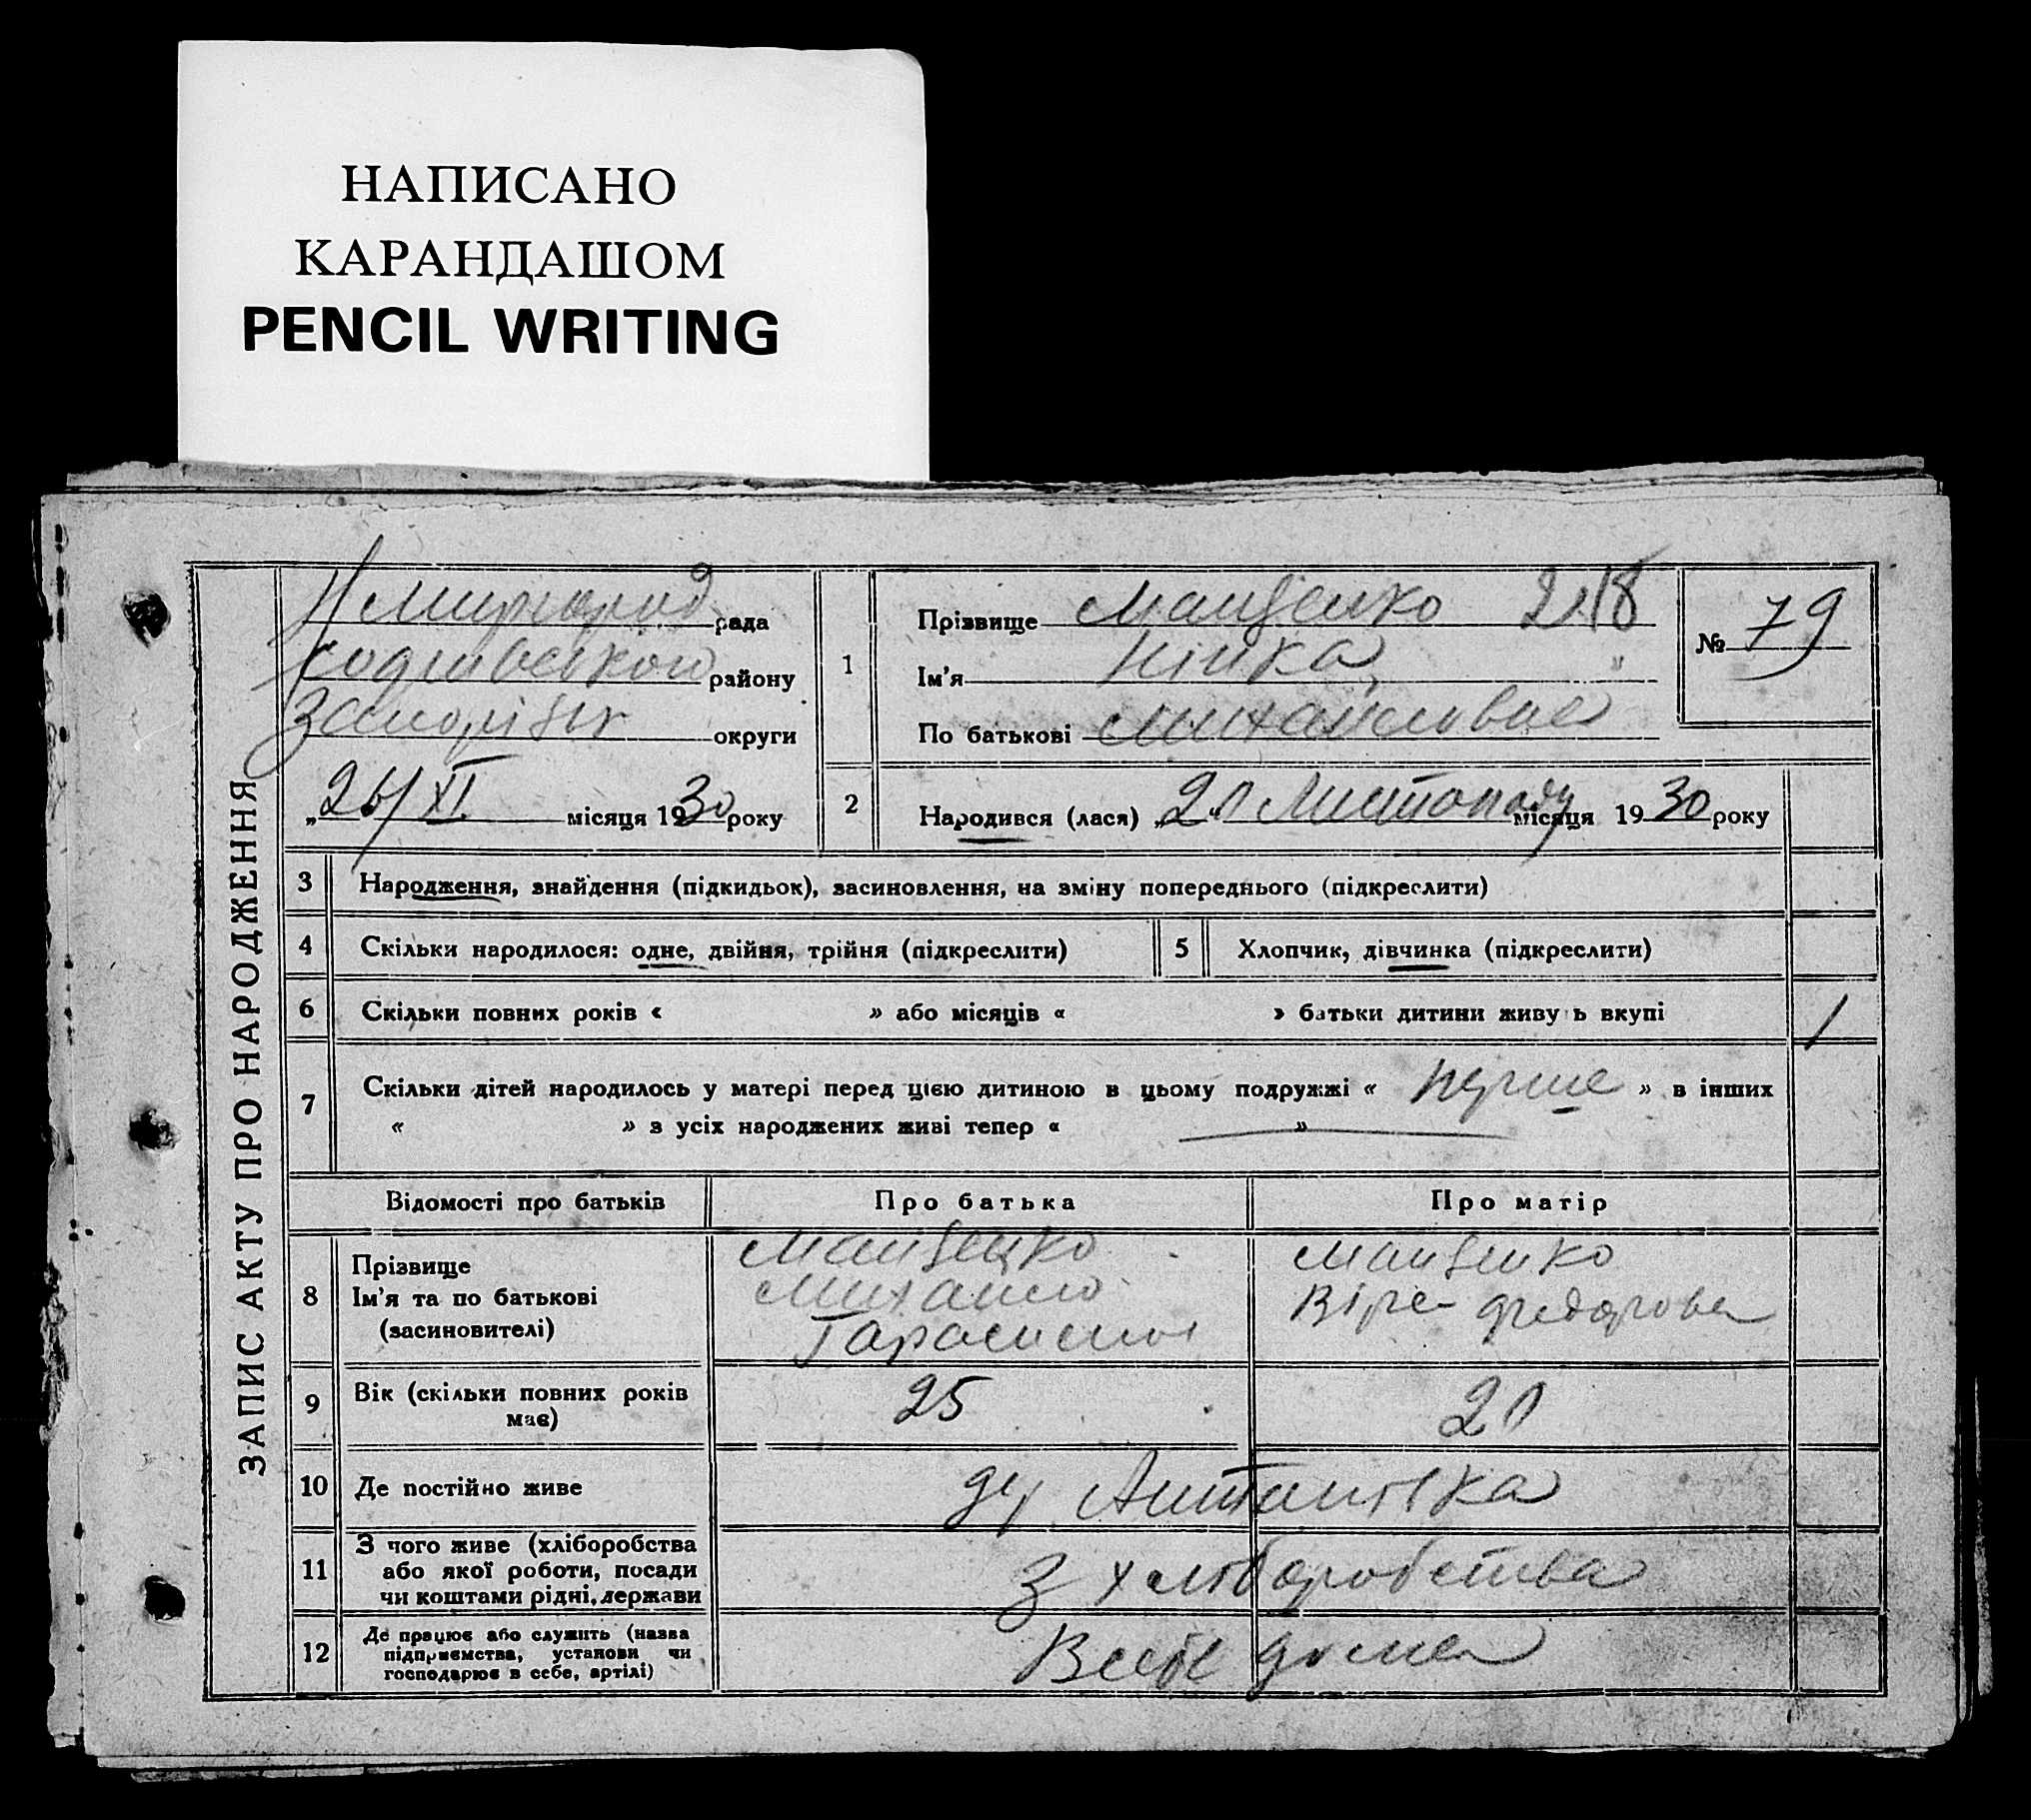 НАПИСАНО
КАРАНДАШОМ
PENCIL WRITING
ЗАПИС АКТУ ПРО НАРОДЖЕННЯ
рада
району
Запоріз округи
„26/XI місяця 1930 року
1
Прізвище Мащенко 218
Ім'я Нінка
По батькові Михайловна
№ 79
2
Народився (лася) „20 Листопаду місяця 1930 року
3 Народження, знайдення (підкидьок), засиновлення, на зміну попереднього (підкреслити)
4 Скільки народилося: одне, двійня, трійня (підкреслити) 5 Хлопчик, дівчинка (підкреслити)
6 Скільки повних років « » або місяців « » батьки дитини живуть вкупі 1
7 Скільки дітей народилось у матері перед цією дитиною в цьому подружжі « перше » в інших
« » з усіх народжених живі тепер « »
Відомості про батьків Про батька Про матір
8 Прізвище
Ім'я та по батькові
(засиновителі)
Мащенко
Михайло
Тарасович
Мащенко
Віра Федоровна
9 Вік (скільки повних років
має)
25 20
10 Де постійно живе
11 З чого живе (хліборобства
або якої роботи, посади
чи коштами рідні, держави
З хліборобства
12 Де працює або служить (назва
підприємства, установи чи
господарює в себе, артілі)
дома